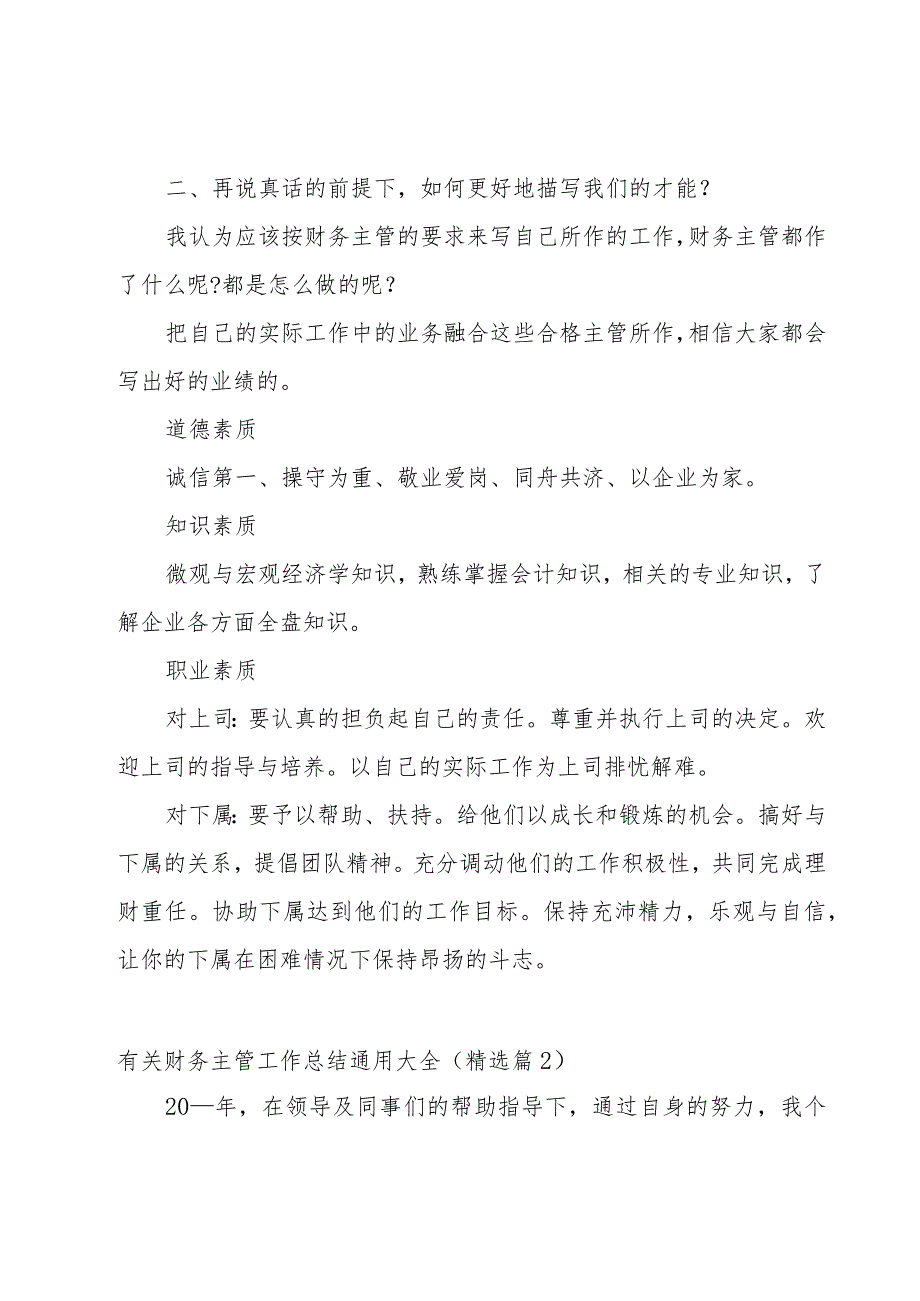 二、再说真话的前提下，如何更好地描写我们的才能？
我认为应该按财务主管的要求来写自己所作的工作，财务主管都作
了什么呢?都是怎么做的呢？
把自己的实际工作中的业务融合这些合格主管所作，相信大家都会
写出好的业绩的。
道德素质
诚信第一、操守为重、敬业爱岗、同舟共济、以企业为家。
知识素质
微观与宏观经济学知识，熟练掌握会计知识，相关的专业知识，了
解企业各方面全盘知识。
职业素质
对上司：要认真的担负起自己的责任。尊重并执行上司的决定。欢
迎上司的指导与培养。以自己的实际工作为上司排忧解难。
对下属：要予以帮助、扶持。给他们以成长和锻炼的机会。搞好与
下属的关系，提倡团队精神。充分调动他们的工作积极性，共同完成理
财重任。协助下属达到他们的工作目标。保持充沛精力，乐观与自信，
让你的下属在困难情况下保持昂扬的斗志。
有关财务主管工作总结通用大全（精选篇2）
20—年，在领导及同事们的帮助指导下，通过自身的努力，我个